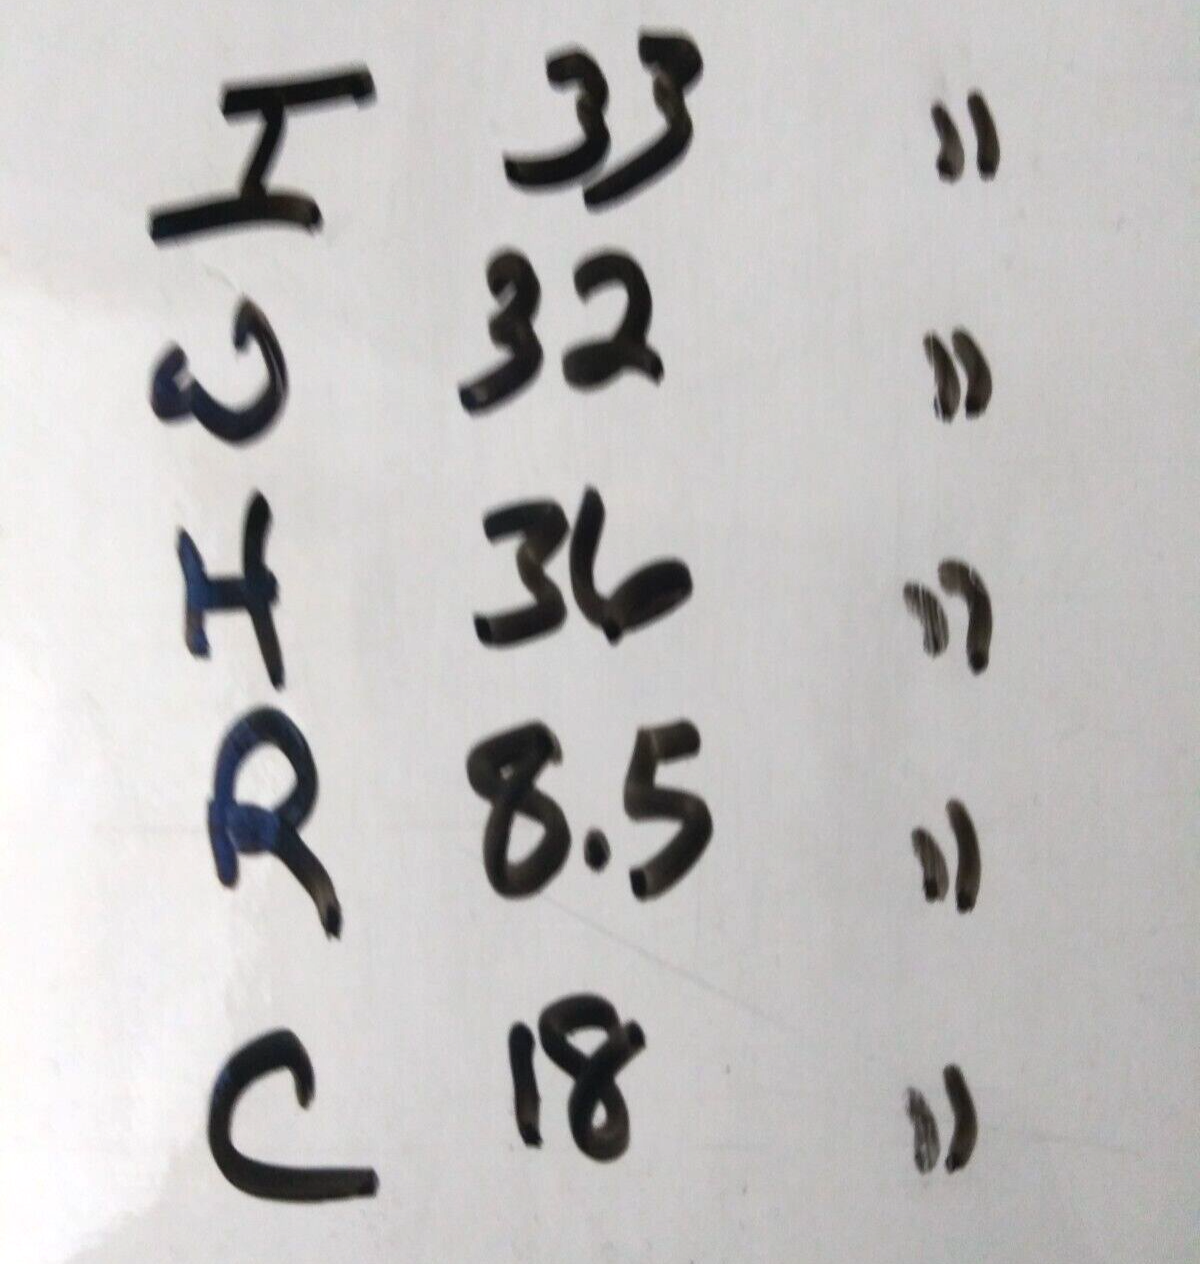 I 33 "
32 "
H 36 "
R 8.5 "
C 18 "